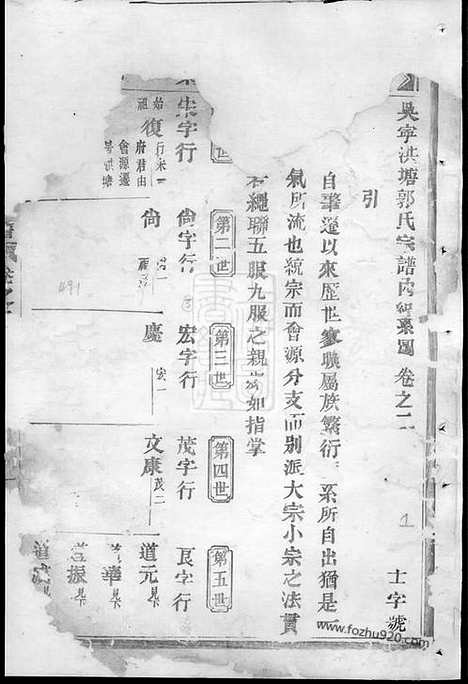 吳寧洪塘郭氏宗譜內紀系圖 卷之二 士字號
引
自肇遷以來歷世聯屬族繁衍系所自出猶是一
氣所流也統宗而會源分支而別派大宗小宗之法貫
繩聯五服九服之親如指掌
世 第二世 第三世 第四世 第五世
宋字行 尚字行 宏字行 茂字行 良字行
始祖 復 行宋一 府君由 會源遷 洪塘
尙 尙一
慶 宏一
文康 茂二
道元
華
振
道
491
1
www.fozhu920.com